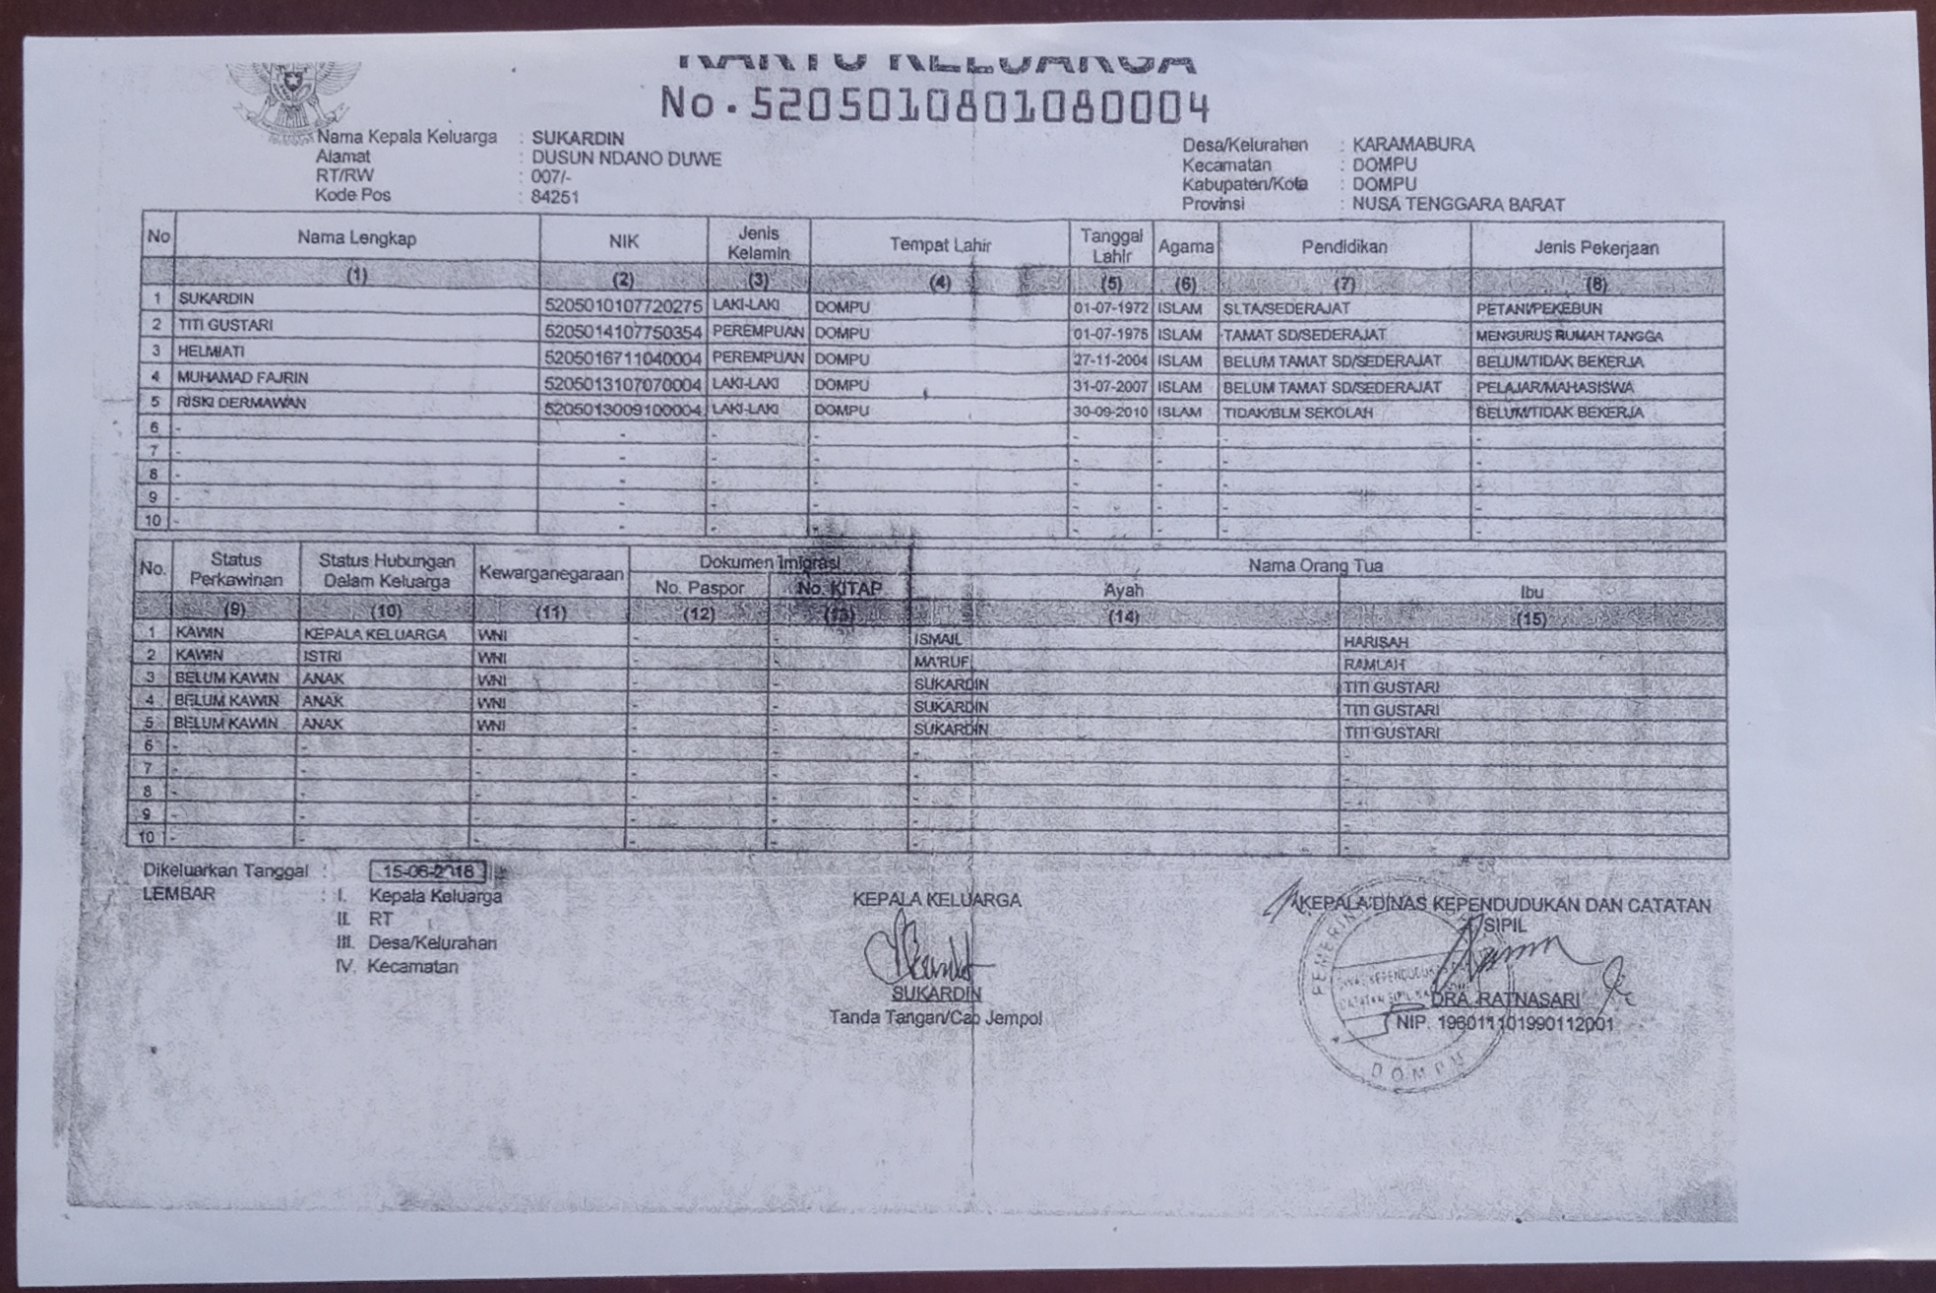 KARTU KELUARGA
No. 5205010801080004
Nama Kepala Keluarga : SUKARDIN
Alamat : DUSUN NDANO DUWE
RT/RW : 007/-
Kode Pos : 84251
Desa/Kelurahan : KARAMABURA
Kecamatan : DOMPU
Kabupaten/Kota : DOMPU
Provinsi : NUSA TENGGARA BARAT
No Nama Lengkap NIK Jenis Kelamin Tempat Lahir Tanggal Lahir Agama Pendidikan Jenis Pekerjaan
(1) (2) (3) (4) (5) (6) (7) (8)
1 SUKARDIN 5205010107720275 LAKI-LAKI DOMPU 01-07-1972 ISLAM SLTA/SEDERAJAT PETANI/PEKEBUN
2 TITI GUSTARI 5205014107750354 PEREMPUAN DOMPU 01-07-1975 ISLAM TAMAT SD/SEDERAJAT MENGURUS RUMAH TANGGA
3 HELMIATI 5205016711040004 PEREMPUAN DOMPU 27-11-2004 ISLAM BELUM TAMAT SD/SEDERAJAT BELUM/TIDAK BEKERJA
4 MUHAMAD FAJRIN 5205013107070004 LAKI-LAKI DOMPU 31-07-2007 ISLAM BELUM TAMAT SD/SEDERAJAT PELAJAR/MAHASISWA
5 RISKI DERMAWAN 5205013009100004 LAKI-LAKI DOMPU 30-09-2010 ISLAM TIDAK/BLM SEKOLAH BELUM/TIDAK BEKERJA
6 - - - - - - - -
7 - - - - - - - -
8 - - - - - - - -
9 - - - - - - - -
10 - - - - - - - -
No. Status Perkawinan Status Hubungan Dalam Keluarga Kewarganegaraan Dokumen Imigrasi Nama Orang Tua
No. Paspor No. KITAP Ayah Ibu
(9) (10) (11) (12) (13) (14) (15)
1 KAWIN KEPALA KELUARGA WNI - - ISMAIL HARISAH
2 KAWIN ISTRI WNI - - MA'RUF RAMLAH
3 BELUM KAWIN ANAK WNI - - SUKARDIN TITI GUSTARI
4 BELUM KAWIN ANAK WNI - - SUKARDIN TITI GUSTARI
5 BELUM KAWIN ANAK WNI - - SUKARDIN TITI GUSTARI
6 - - - - - - -
7 - - - - - - -
8 - - - - - - -
9 - - - - - - -
10 - - - - - - -
Dikeluarkan Tanggal : 15-06-2016
LEMBAR : I. Kepala Keluarga
II. RT
III. Desa/Kelurahan
IV. Kecamatan
KEPALA KELUARGA
SUKARDIN
Tanda Tangan/Cap Jempol
KEPALA DINAS KEPENDUDUKAN DAN CATATAN
SIPIL
DRA. RATNASARI
NIP. 196011101990112001
DOMPU